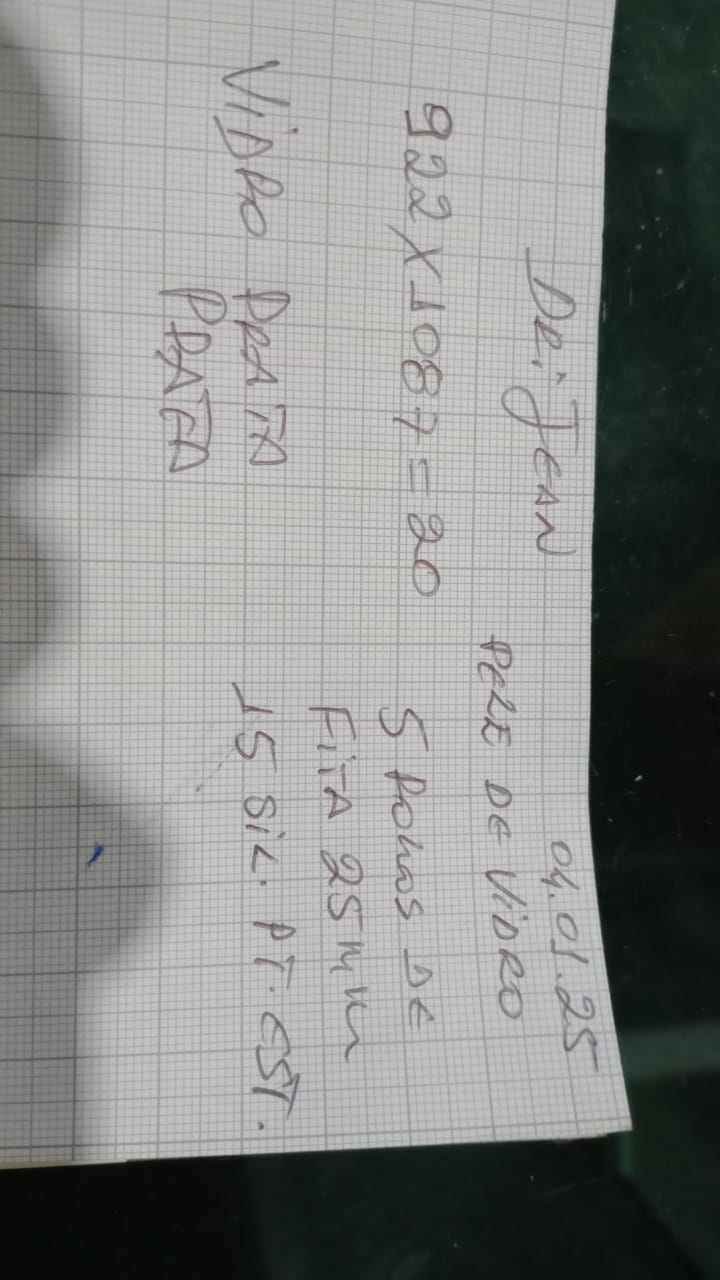 DRi JEAN
04.01.25
PELE DE VIDRO
922 X 1087 = 20
5 ROLOS DE
FiTA 25 mm
VIDRO PRATA
PRATA
15 SiL. PT. EST.